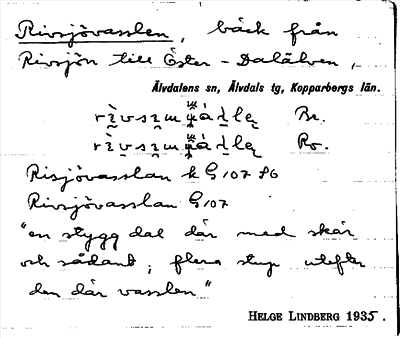 Rivsjövasslen, bäck från
Rivsjön till Öster-Dalälven,
Älvdalens sn, Älvdals tg, Kopparbergs län.
Br.
Ro.
Risjövasslan k G107 S6
Rivsjövasslan G107
"en stygg dal där med skär
och sådant; flera stup utefter
den där vasslen"
HELGE LINDBERG 1935.